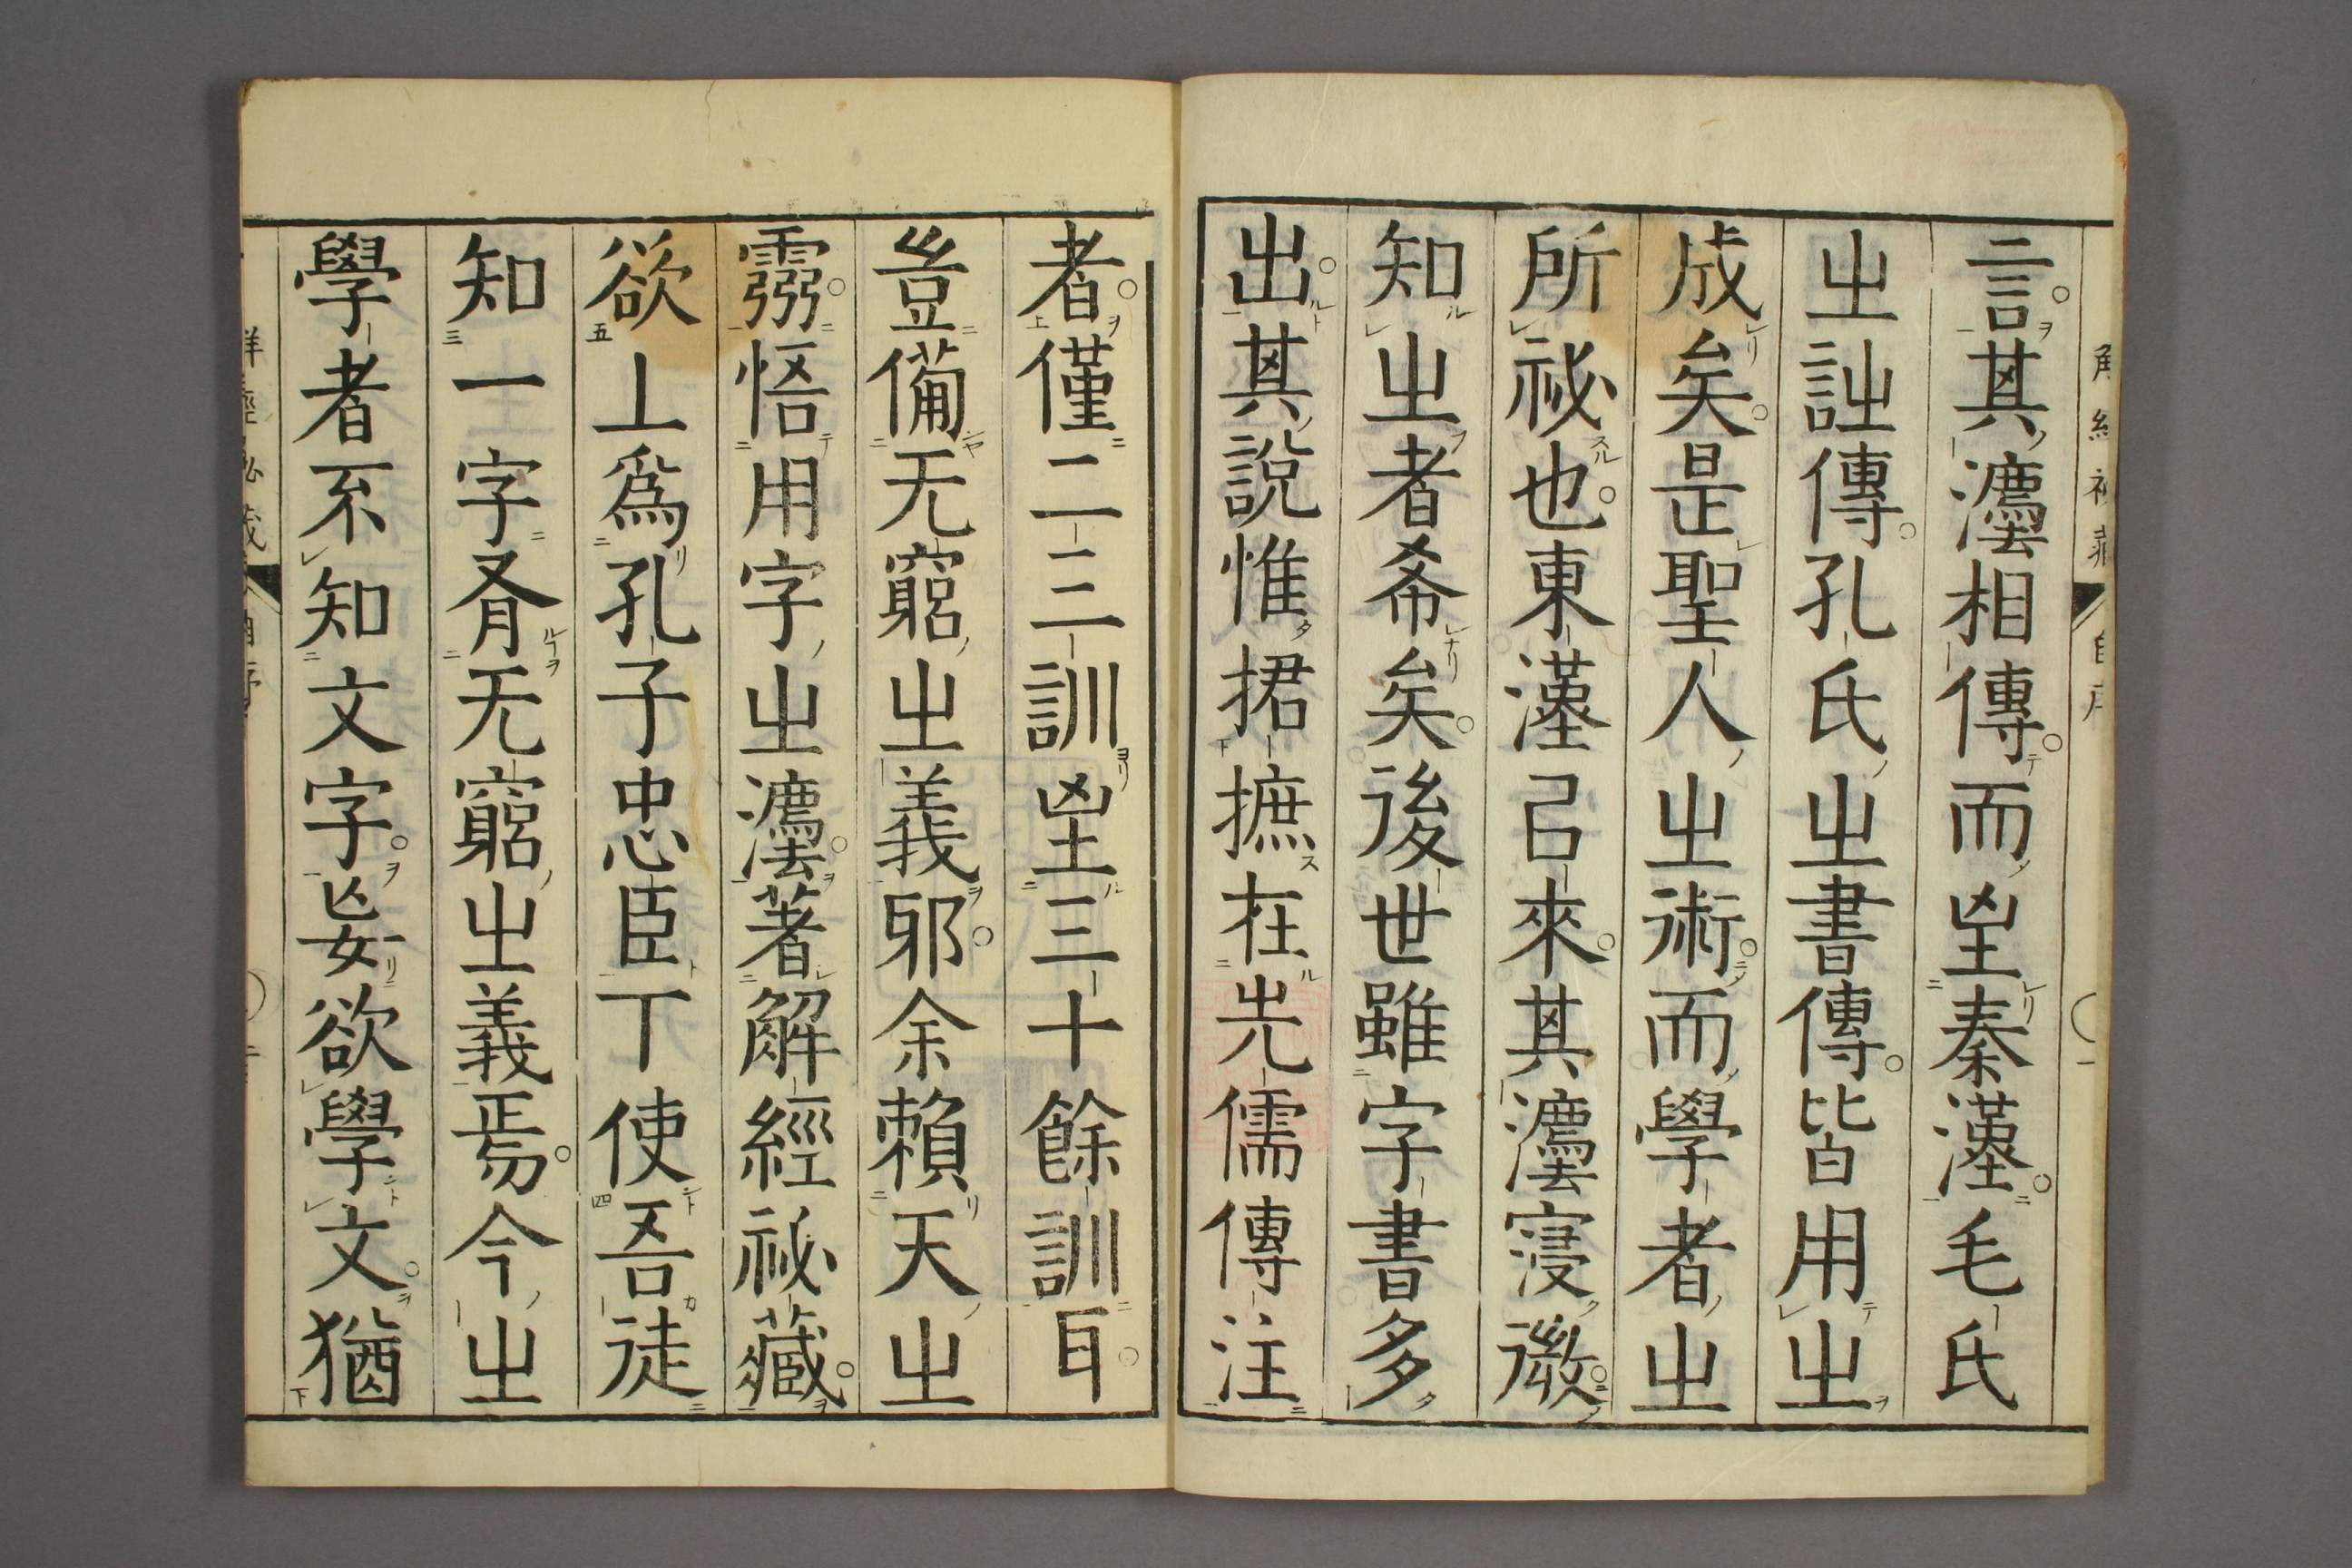 解經祕藏 自序 一
言其灋相傳而㞷秦漢毛氏
㞢詁傳孔氏㞢書傳皆用㞢
成矣是聖人㞢術而學者㞢
所祕也東漢㠯來其灋寖微
知㞢者希矣後世雖字書多
出其說惟捃摭在先儒傳注
者僅二三訓㞷三十餘訓耳
豈備无窮㞢義邪余賴天㞢
靈悟用字㞢灋著解經祕藏
欲丄爲孔子忠臣丅使吾徒
知一字有无窮㞢義焉今㞢
學者不知文字妄欲學文猶
解經祕藏 自序